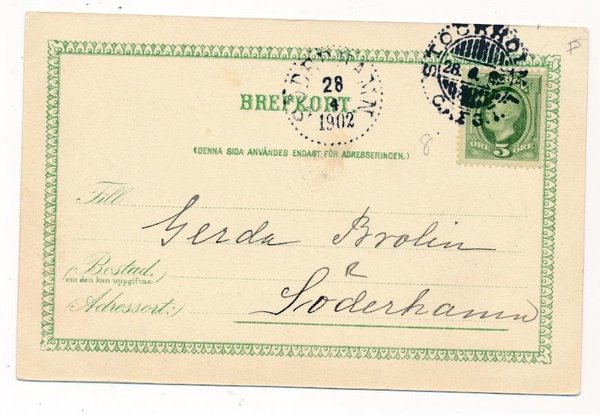 STOCKHOLM
28. 4.
C.P.E.G.
SÖDERHAMN
28
4
1902
BREFKORT.
(DENNA SIDA ANVÄNDES ENDAST FÖR ADRESSERINGEN.)
8
ÖRE 5 ÖRE
Till
Gerda Brolin
(Bostad,
om den kan uppgifvas:)
(Adressort:)
Söderhamn